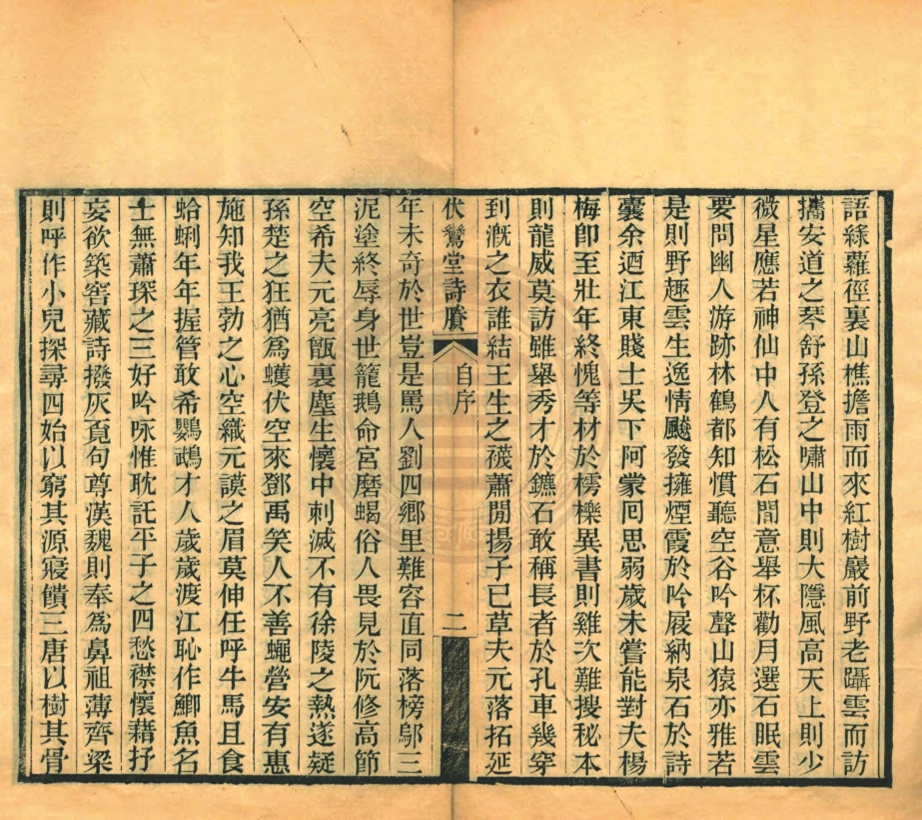 語綠蘿徑裏山樵擔雨而來紅樹巖前野老躡雲而訪
攜安道之琴舒孫登之嘯山中則大隱風高天上則少
微星應若神仙中人有松石間意舉杯勸月選石眠雲
要問幽人游跡林鶴都知慣聽空谷吟聲山猿亦雅若
是則野趣雲生逸情飈發擁煙霞於吟屐納泉石於詩
囊余迺江東賤士吳下阿蒙囘思弱歲未嘗能對夫楊
梅卽至壯年終愧等材於樗櫟異書則雞次難搜秘本
則龍威莫訪雖舉秀才於鐎石敢稱長者於孔車幾穿
到溉之衣誰結王生之襪蕭閒揚子已草夫元落拓延
伏鸞堂詩賸
自序
二
年未奇於世豈是罵人劉四鄉里難容直同落榜鄔三
泥塗終辱身世籠鵝命宮磨蝎俗人畏見於阮修高節
空希夫元亮甑裏塵生懷中刺滅不有徐陵之熱遂疑
孫楚之狂猶爲蠖伏空來鄧禹笑人不善蠅營安有惠
施知我王勃之心空織元謨之眉莫伸任呼牛馬且食
蛤蜊年年握管敢希鸚鵡才人歲歲渡江恥作鯽魚名
士無蕭琛之三好吟咏惟耽託平子之四愁襟懷藉抒
妄欲築窖藏詩撥灰覓句尊漢魏則奉爲鼻祖薄齊梁
則呼作小兒探尋四始以窮其源寢饋三唐以樹其骨